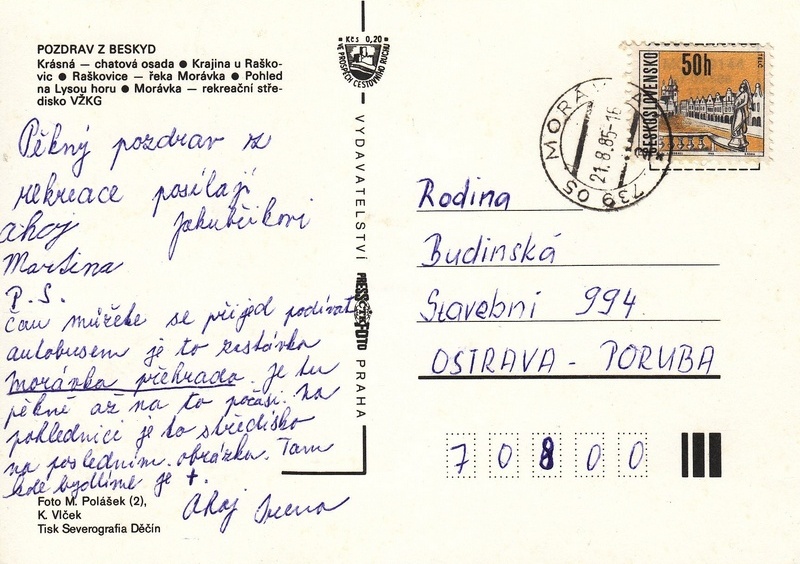 POZDRAV Z BESKYD
Krásná — chatová osada ● Krajina u Raško-
vic ● Raškovice — řeka Morávka ● Pohled
na Lysou horu ● Morávka — rekreační stře-
disko VŽKG
Pěkný pozdrav z
rekreace posílají
Jakubčíkovi
ahoj
Martina
P.S.
čau můžete se přijed podívat
autobusem je to zastávka
morávka přehrada. je tu
pěkně až na to počasí. na
pohlednici je to středisko
na posledním. obrázku. Tam
kde bydlíme je +.
Ahoj Irena
Foto M. Polášek (2),
K. Vlček
Tisk Severografia Děčín
Kčs 0,20
VE PROSPĚCH CESTOVNÍHO RUCHU
VYDAVATELSTVÍ
PRESSFOTO
PRAHA
ČESKOSLOVENSKO
50h
TELČ
MORÁVKA
21.8.85-16
739 05
Rodina
Budinská
Stavební 994
OSTRAVA - PORUBA
7 0 8 0 0